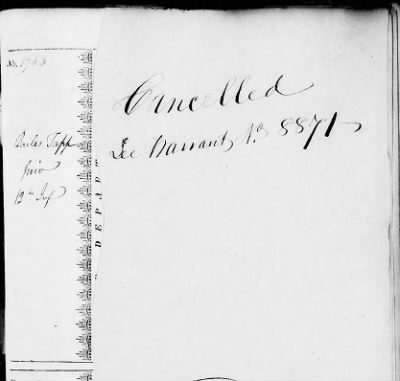 No. 1763
Cancelled
See Warrant No 8871
Tapp
Priv
12th Inf
DEPAR